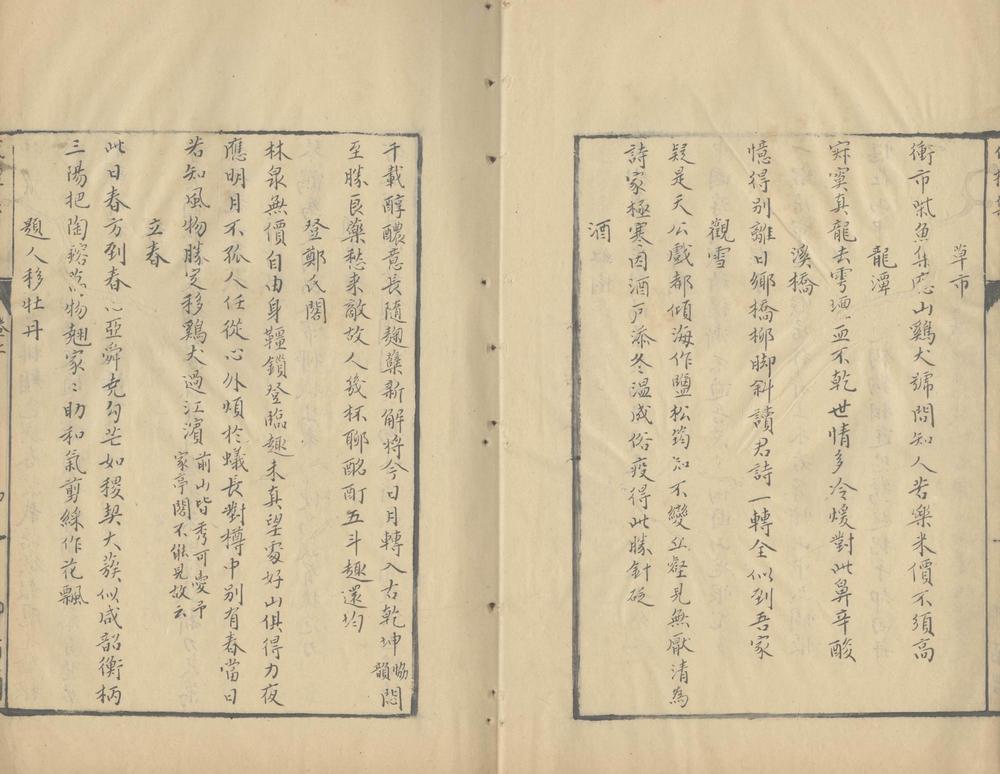 草市
衝市柴魚集忘山鷄犬號問知人苦樂米價不須高
龍潭
寂寞真龍去雩壇血不乾世情多冷煖對此鼻辛酸
溪橋
憶得别離日鄉橋柳脚斜讀君詩一轉全似到吾家
觀雪
疑是天公戲都傾海作鹽松筠知不變丘壑見無厭清為
詩家極寒因酒戶添冬溫成俗疫得此勝針砭
酒
千載醇醲意長隨麴櫱新解將今日月轉入古乾坤 協韻 悶
至勝良藥愁來敵故人幾杯聊酩酊五斗趣還均
登鄭氏閣
林泉無價自由身韁鎖登臨趣未真望處好山俱得力夜
應明月不孤人任從心外煩於蟻長對樽中别有春當日
若知風物勝定移鷄犬過江濱 前山皆秀可愛予
家亭閣不能見故云
立春
此日春方到春心亞舜堯勾芒如稷契大蔟似咸韶衡柄
三陽把陶鎔萬物翹家〻助和氣剪綵作花飄
題人移牡丹